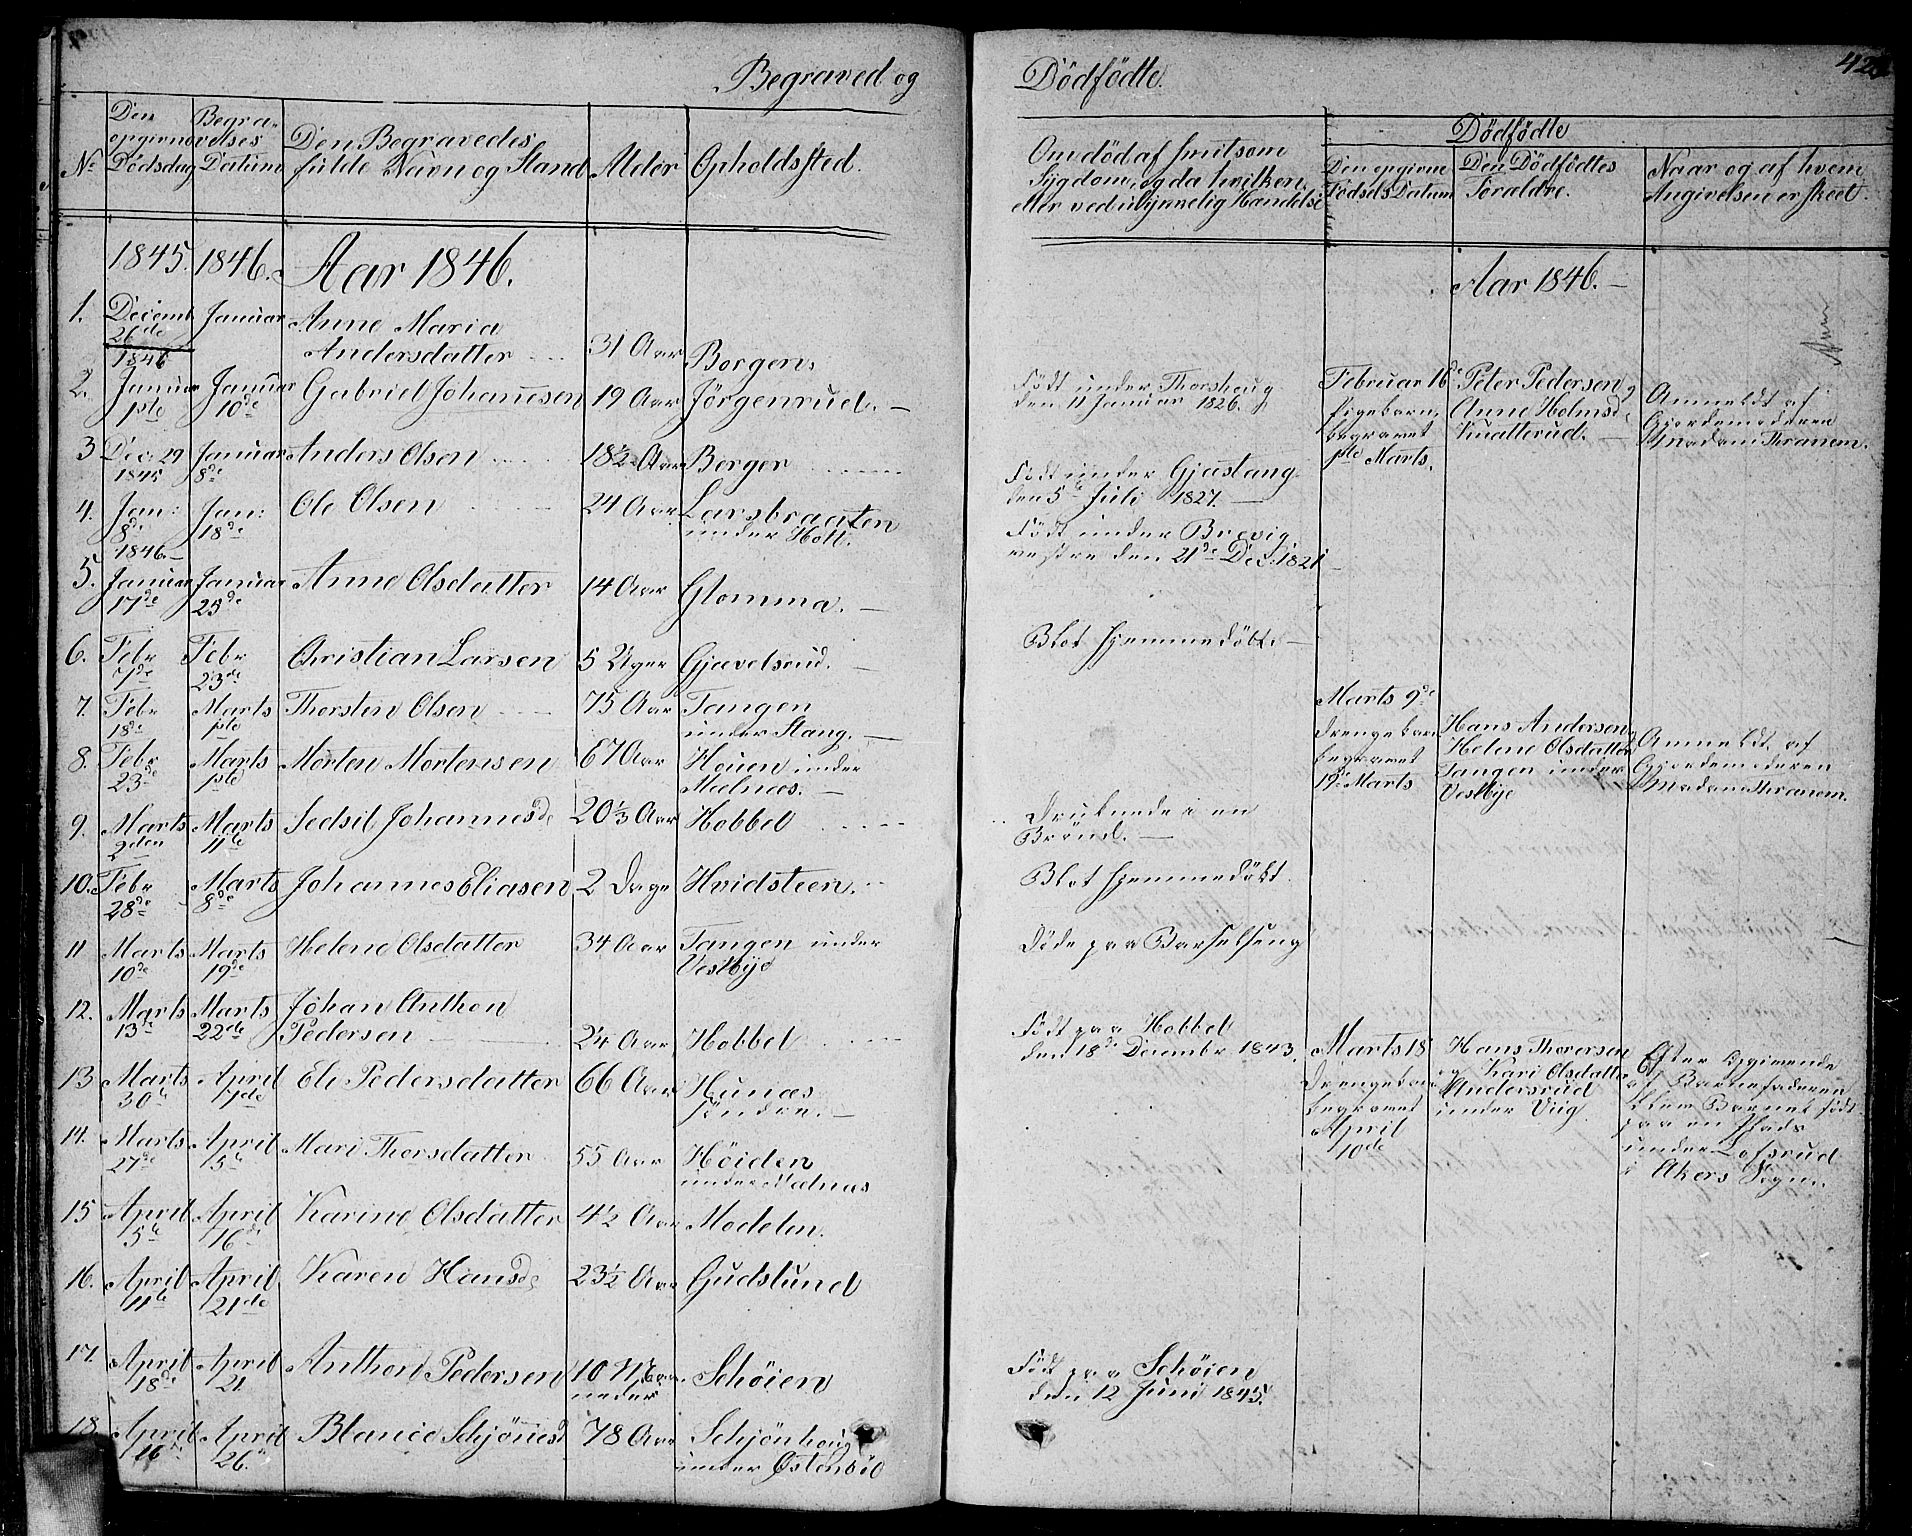 Begraved og
Dödfödte.
No
Den opgivne Dödsdag
Begravelses Datum
Den Begravedes fulde Navn og Stand
Alder
Opholdssted.
1845. 1846. Aar 1846.
1. Decemb 26de Januar Anne Maria Andersdatter 31 Aar Borgen
1846
2. Januar 1ste Januar 10de Gabriel Johannesen 19 Aar Jörgenrud.
3 Dec. 29 1845 Januar 8de Anders Olsen 18½ Aar Berger
4. Jan: 8de Jan: 18de Ole Olsen 24 Aar Larsbraaten under Holt.
1846.
5. Januar 17de Januar 25de Anne Olsdatter 14 Aar Glomma.
6. Febr 7de Febr 23de Christian Larsen 5 Uger Gjævelsrud.
7. Febr 18de Marts 1ste Thorsten Olsen 75 Aar Tangen under Stang.
8. Febr 23de Marts 1ste Morten Mortensen 67 Aar Houen under Mælnæs.
9. Marts 2den Marts 11te Sedsil Johannesd. 20⅓ Aar Hobbel
10. Febr 28de Marts 8de Johannes Eliasen 2 Dage Hvidsteen.
11 Marts 10de Marts 19de Helene Olsdatter 34 Aar Tangen under Vestbye
12. Marts 13de Marts 22de Johan Anthon Pedersen 2¼ Aar Hobbel
13 Marts 30te April 7de Eli Pedersdatter 66 Aar Hunæs söndre.
14. Marts 27de April 5te Mari Thorsdatter 55 Aar Höiden under Mælnæs
15 April 5te April 16de Karine Olsdatter 4½ Aar Modelen.
16. April 11te April 21de Karen Hansd. 23½ Aar Gudslund
17. April 18de April 21. Anthon Pedersen 10 Maaneder Schöien
18. April 16de April 26. Blance Schjönesd 78 Aar Schjönhoug under Östenböl
Om död af smitsom Sygdom, og da hvilken, eller ved ulykkelig Hændelse
Dödfödte
Den opgivne Födsels Datum
Den Dödfödtes Forældre.
Naar og af hvem Angivelsen er skeet.
Aar 1846.
Födt under Thorshoug den 11 Januar 1826.
Februar 16de Pigebarn, begravet 1ste Marts.
Peter Pedersen og Anne Holmsd. Knatterud.
Anmeldt af Gjordemoderen Madam Thranem.
Födt under Gjæstang den 5te Juli 1827.
Födt under Brevig vestre den 21de Dec. 1821
Blot hjemmedöbt.
Marts 9de Drengebarn begravet 19de Marts
Hans Andersen og Helene Olsdatter Tangen under Vestbye
Anmeldt af Gjordemoderen Madam Thranem.
Druknede i en Brönd.
Blot hjemmedöbt.
Döde paa Barselseng
Födt paa Hobbel den 18de Decembr 1843.
Marts 18 Drengebarn begravet April 10de
Hans Thoresen og Kari Olsdatter Andersrud under Viig.
Efter Opgivende af Barnefaderen blev Barnet födt paa en Plads under Lofsrud i Akers Sogn.
Födt paa Schöien den 12 Juni 1845.